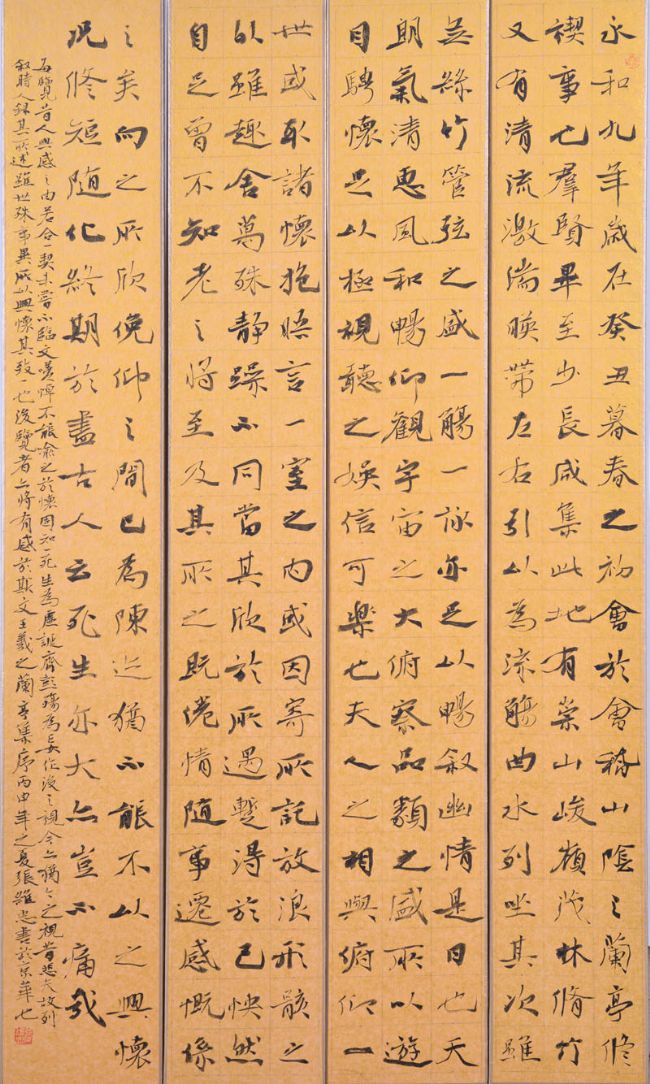 永和九年歲在癸丑暮春之初會於會稽山陰之蘭亭修
禊事也羣賢畢至少長咸集此地有崇山峻嶺茂林脩竹
又有清流激湍暎帶左右引以為流觴曲水列坐其次雖
無絲竹管弦之盛一觴一詠亦足以暢敘幽情是日也天
朗氣清惠風和暢仰觀宇宙之大俯察品類之盛所以遊
目騁懷足以極視聽之娛信可樂也夫人之相與俯仰一
世或取諸懷抱晤言一室之內或因寄所託放浪形骸之
外雖趣舍萬殊靜躁不同當其欣於所遇暫得於己怏然
自足曾不知老之將至及其所之既倦情隨事遷感慨係
之矣向之所欣俛仰之間已為陳迹猶不能不以之興懷
況修短隨化終期於盡古人云死生亦大矣豈不痛哉
每覽昔人興感之由若合一契未嘗不臨文嗟悼不能喻之於懷固知一死生為虛誕齊彭殤為妄作後之視今亦猶今之視昔悲夫故列
敘時人錄其所述雖世殊事異所以興懷其致一也後覽者亦將有感於斯文王羲之蘭亭集序丙申年之夏張維忠書於京華也